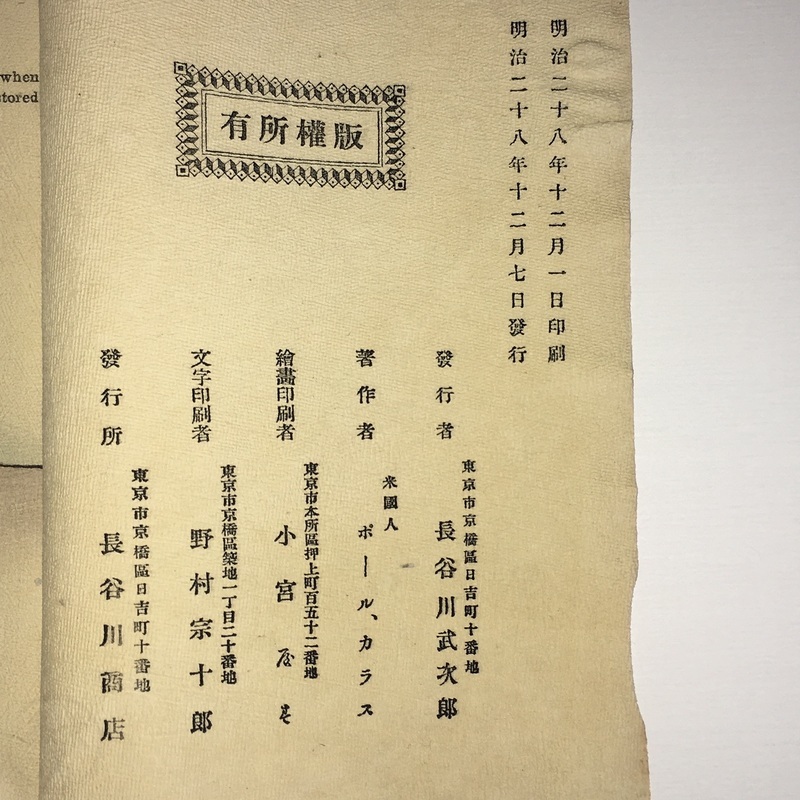 明治二十八年十二月一日印刷
明治二十八年十二月七日發行
版權所有
發行者
東京市京橋區日吉町十番地
長谷川武次郎
著作者
米國人
ポール、カラス
繪畵印刷者
東京市本所區押上町百五十二番地
小宮
文字印刷者
東京市京橋區築地一丁目二十番地
野村宗十郎
發行所
東京市京橋區日吉町十番地
長谷川商店
when
stored